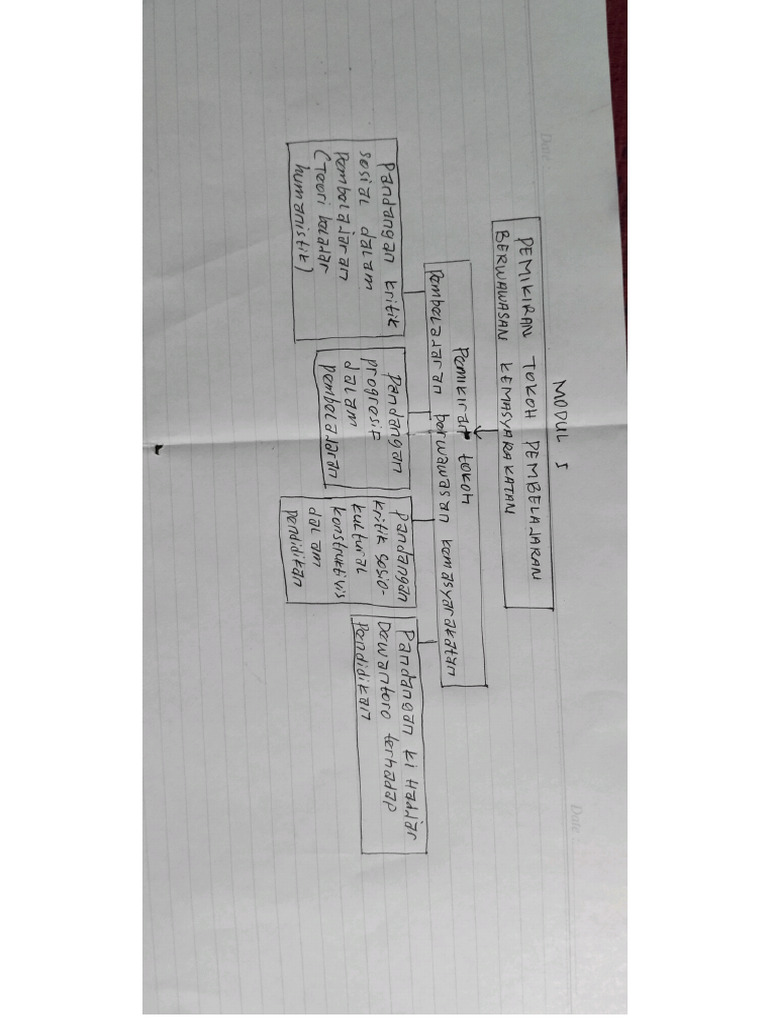 MODUL 5
PEMIKIRAN TOKOH PEMBELAJARAN
BERWAWASAN KEMASYARAKATAN
Pemikiran tokoh
Pembelajaran berwawasan kemasyarakatan
Pandangan kritik
sosial dalam
pembelajaran
(Teori belajar
humanistik)
Pandangan
progresif
dalam
pembelajaran
Pandangan
kritik sosio-
kultural
konstruktivis
dalam
pendidikan
Pandangan ki Hadjar
Dewantoro terhadap
Pendidikan
Date
Date